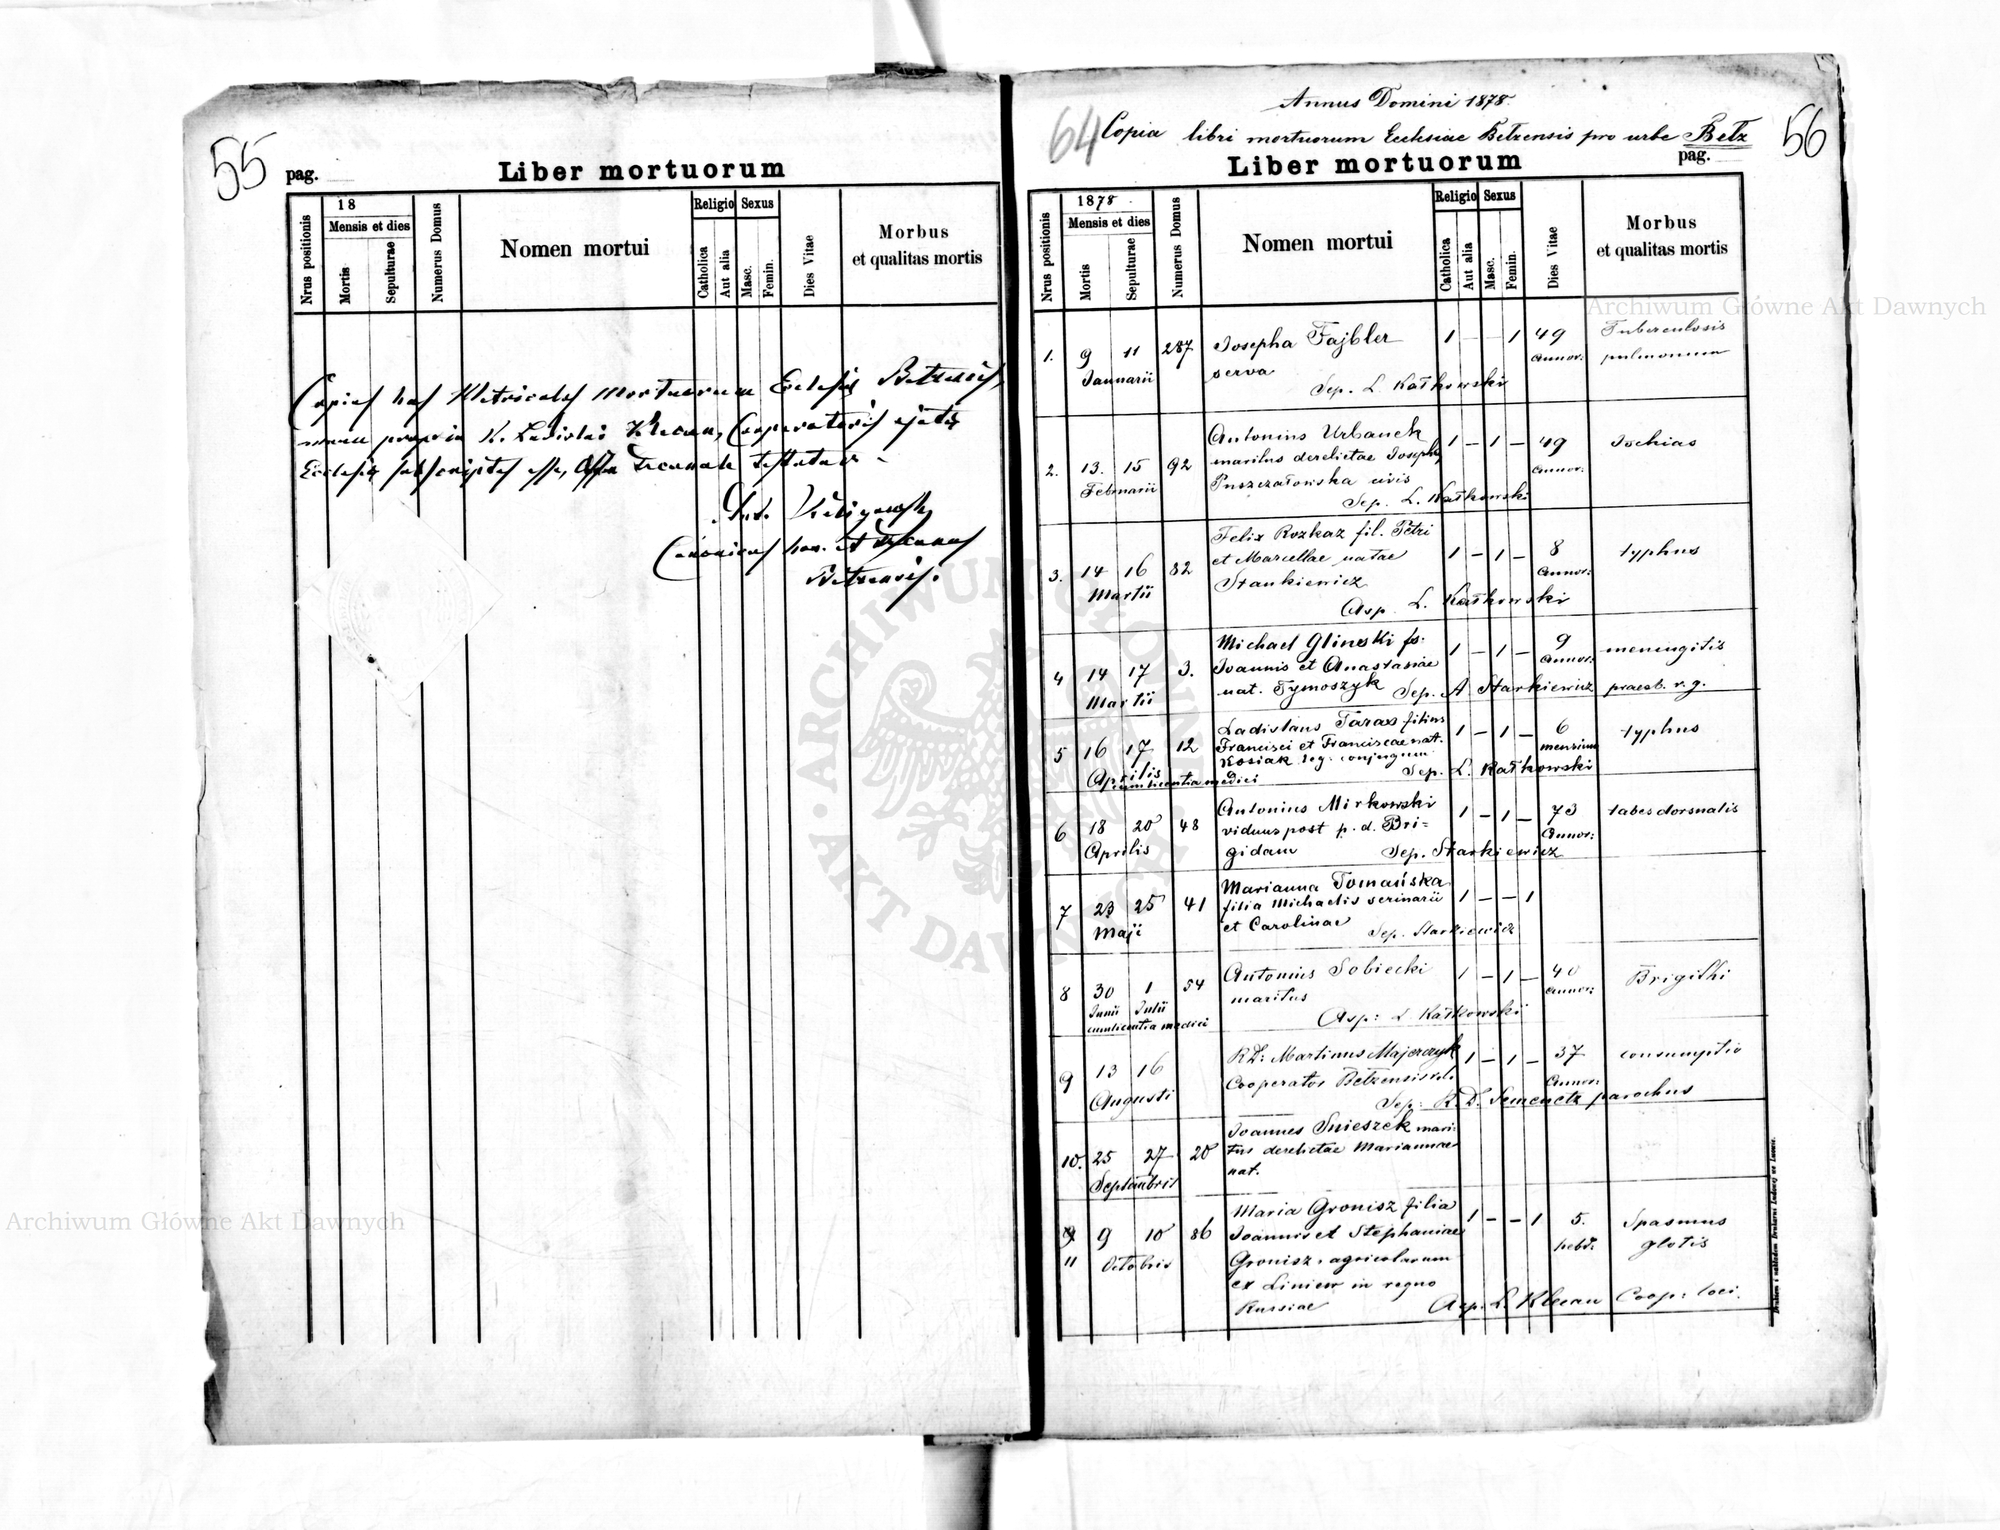 55
pag.
Liber mortuorum
Nrus positionis
18
Mensis et dies
Mortis
Sepulturae
Numerus Domus
Nomen mortui
Religio
Catholica
Aut alia
Sexus
Masc.
Femin.
Dies Vitae
Morbus
et qualitas mortis
mortuorum
manu propria Ladislai
Ecclesiae
Canonicus hon. et Decanus
Annus Domini 1878.
64 Copia libri mortuorum Ecclesiae Bełzensis pro urbe Bełz
56
Liber mortuorum
pag.
Nrus positionis
1878.
Mensis et dies
Mortis
Sepulturae
Numerus Domus
Nomen mortui
Religio
Catholica
Aut alia
Sexus
Masc.
Femin.
Dies Vitae
Morbus
et qualitas mortis
1. 9 11 287 Josepha Fajbler 1 - - 1 49 Tuberculosis
Januarii serva annor: pulmonum
Sep. L. Kałkowski
2. 13. 15 92 Antonius Urbanek 1 - 1 - 49 Ischias
Februarii maritus derelictae Josephae annor:
Puszczałowska civis
Sep. L. Kałkowski
3. 14 16 82 Felix Rozkaz fil. Petri 1 - 1 - 8 typhus
Martii et Marcellae natae annor:
Stankiewicz
Asp. L. Kałkowski
4 14 17 3. Michael Glinski fs. 1 - 1 - 9 meningitis
Martii Joannis et Anastasiae annor:
nat. Tymoszyk Sep. A. Starkiewicz praesb. r. g.
5 16 17 12 Ladislaus Taras filius 1 - 1 - 6 typhus
Aprilis Francisci et Franciscae nat. mensium
Kosiak leg. conjugum
Sep. L. Kałkowski
cum licentia medici
6 18 20 48 Antonius Mirkowski 1 - 1 - 73 tabes dorsualis
Aprilis viduus post p. d. Bri= annor:
gidam Sep. Starkiewicz
7 23 25 41 Marianna Tomańska 1 - - 1
Maji filia Michaelis scrinarii
et Carolinae Sep. Starkiewicz
8 30 1 54 Antonius Sobiecki 1 - 1 - 40 Brigthi
Junii Julii maritus annor:
cum licentia medici Asp: L. Kałkowski
9 13 16 RD: Martinus Majerczyk 1 - 1 - 37 consumptio
Augusti Cooperator Bełzensis annor:
Sep: R. D. Semenetz parochus
10. 25 27 20 Joannes Snieszek mari:
Septembris tus derelictae Mariannae
nat.
11 9 10 86 Maria Gronisz filia 1 - - 1 5. Spasmus
Octobris Joannis et Stephaniae hebd. glotis
Gronisz agricolarum
ex Liniew in regno
Russiae Asp. L. Klecan Coop: loci.
Drukiem i nakładem Drukarni Ludowej we Lwowie.
Archiwum Główne Akt Dawnych
Archiwum Główne Akt Dawnych
ARCHIWUM GŁÓWNE AKT DAWNYCH